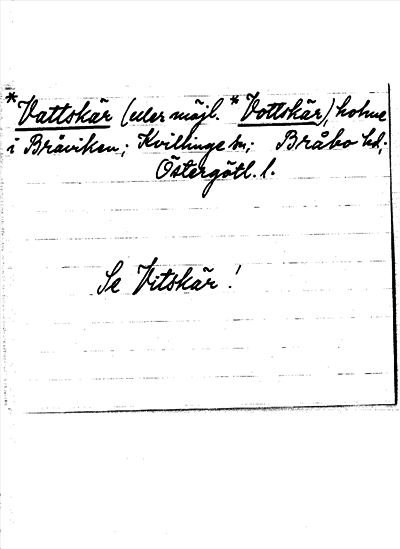 *Vattskär (eller möjl. *Vottskär), holme
i Bråviken; Kvillinge sn; Bråbo hd;
Östergötl. l.
Se Vitskär!